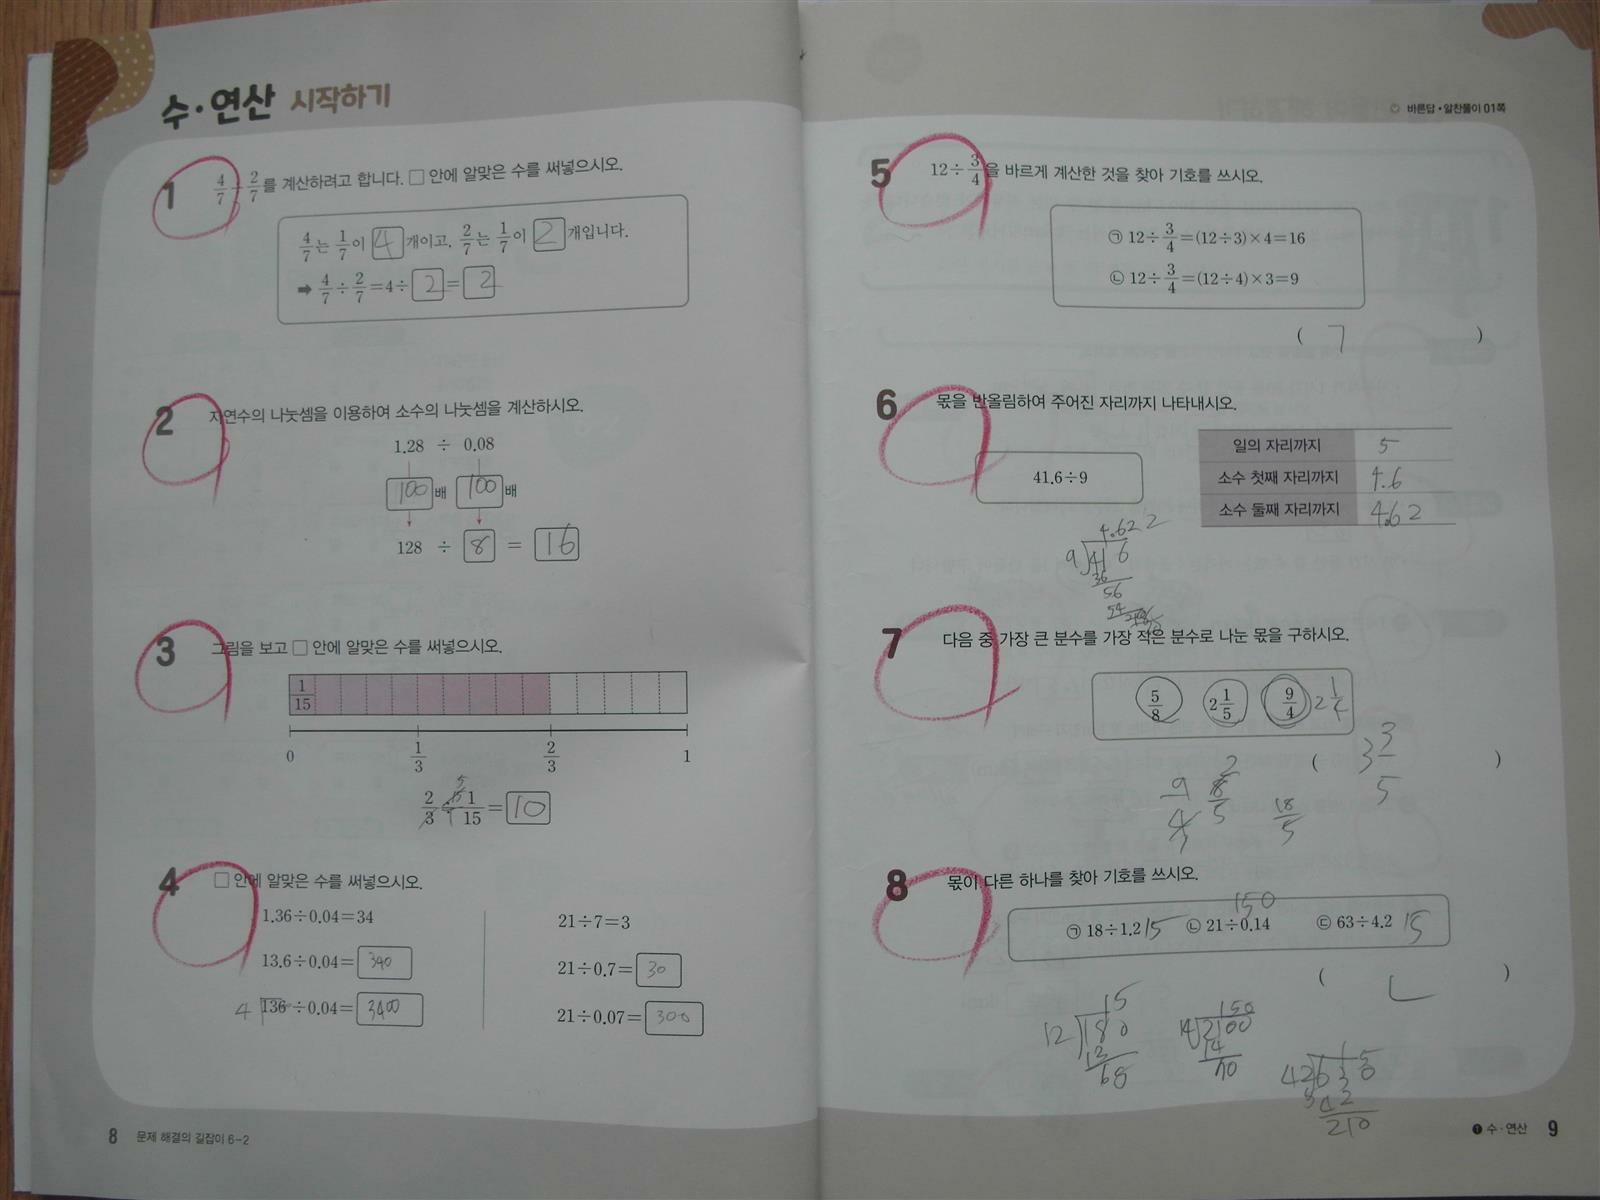 수·연산 시작하기
1 4/7÷2/7를 계산하려고 합니다. □ 안에 알맞은 수를 써넣으시오.
4/7는 1/7이 4 개이고, 2/7는 1/7이 2 개입니다.
➡ 4/7÷2/7=4÷2=2
2 자연수의 나눗셈을 이용하여 소수의 나눗셈을 계산하시오.
1.28 ÷ 0.08
100 배 100 배
128 ÷ 8 = 16
3 그림을 보고 □ 안에 알맞은 수를 써넣으시오.
1/15
0 1/3 2/3 1
5
2/3÷1/15=10
4 □ 안에 알맞은 수를 써넣으시오.
1.36÷0.04=34
13.6÷0.04=340
4 136÷0.04=3400
21÷7=3
21÷0.7=30
21÷0.07=300
8 문제 해결의 길잡이 6-2
바른답·알찬풀이 01쪽
5 12÷3/4을 바르게 계산한 것을 찾아 기호를 쓰시오.
㉠ 12÷3/4=(12÷3)×4=16
㉡ 12÷3/4=(12÷4)×3=9
( ㄱ )
6 몫을 반올림하여 주어진 자리까지 나타내시오.
41.6÷9
일의 자리까지 5
소수 첫째 자리까지 4.6
소수 둘째 자리까지 4.62
4.622
9 41 6
36
56
54
7 다음 중 가장 큰 분수를 가장 작은 분수로 나눈 몫을 구하시오.
5/8 2 1/5 9/4 2 1/4
( 3 3/5 )
9/4 8/5 2 18/5
8 몫이 다른 하나를 찾아 기호를 쓰시오.
150
㉠ 18÷1.2 15 ㉡ 21÷0.14 ㉢ 63÷4.2 15
( ㄴ )
15
12 180
12
60
150
14 2100
14
70
15
42 630
42
210
❶ 수·연산 9